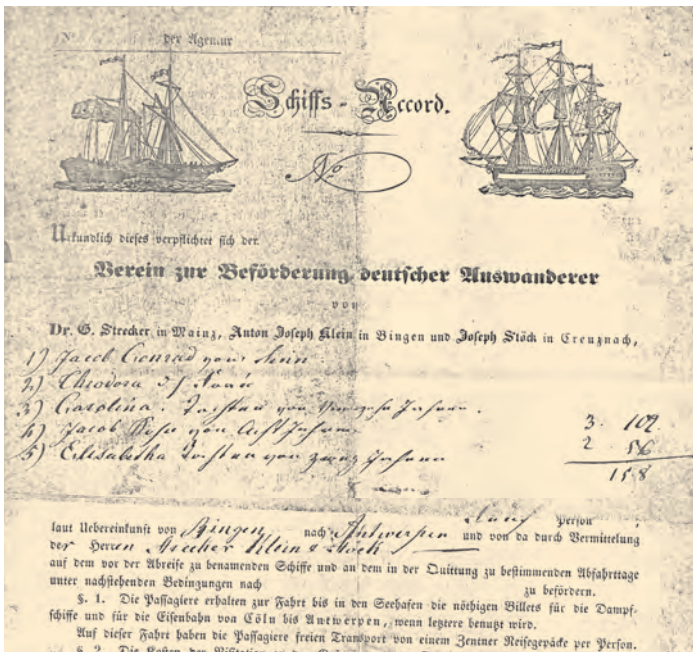 No der Agentur
Schiffs-Accord.
No
Urkundlich dieses verpflichtet sich der
Verein zur Beförderung deutscher Auswanderer
von
Dr. G. Strecker in Mainz, Anton Joseph Klein in Bingen und Joseph Stöck in Creuznach,
1) Jacob Conrad von
2) Theodora
3) Carolina. Tochter von Jahren.
4) Jacob Sohn von Acht Jahren 3. 102.
5) Elisabetha Tochter von zwey Jahren 2 56
158
laut Uebereinkunft von Bingen nach Antwerpen Person
und von da durch Vermittelung
der Herren Strecker Klein & Stöck
auf dem vor der Abreise zu benamenden Schiffe und an dem in der Quittung zu bestimmenden Abfahrttage
unter nachstehenden Bedingungen nach zu befördern.
§. 1. Die Passagiere erhalten zur Fahrt bis in den Seehafen die nöthigen Billets für die Dampf-
schiffe und für die Eisenbahn von Cöln bis Antwerpen, wenn letztere benutzt wird.
Auf dieser Fahrt haben die Passagiere freien Transport von einem Zentner Reisegepäcke per Person.
§. 2. Die Kosten der